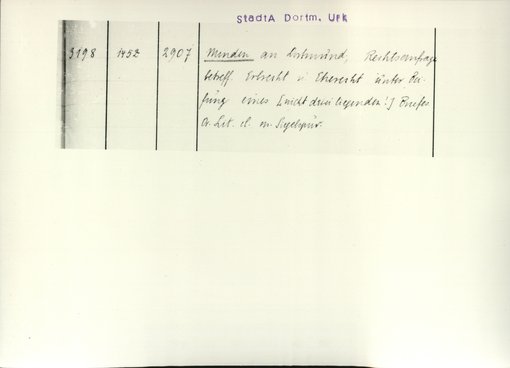 StadtA Dortm. Urk
3198 1452 2907 Minden an Dortmund, Rechtsanfrage
betreff Erbrecht u. Eherecht unter Bei-
fügung eines [nicht dreiliegenden!] Briefes
Or. Lit. cl. m. Siegelspur.